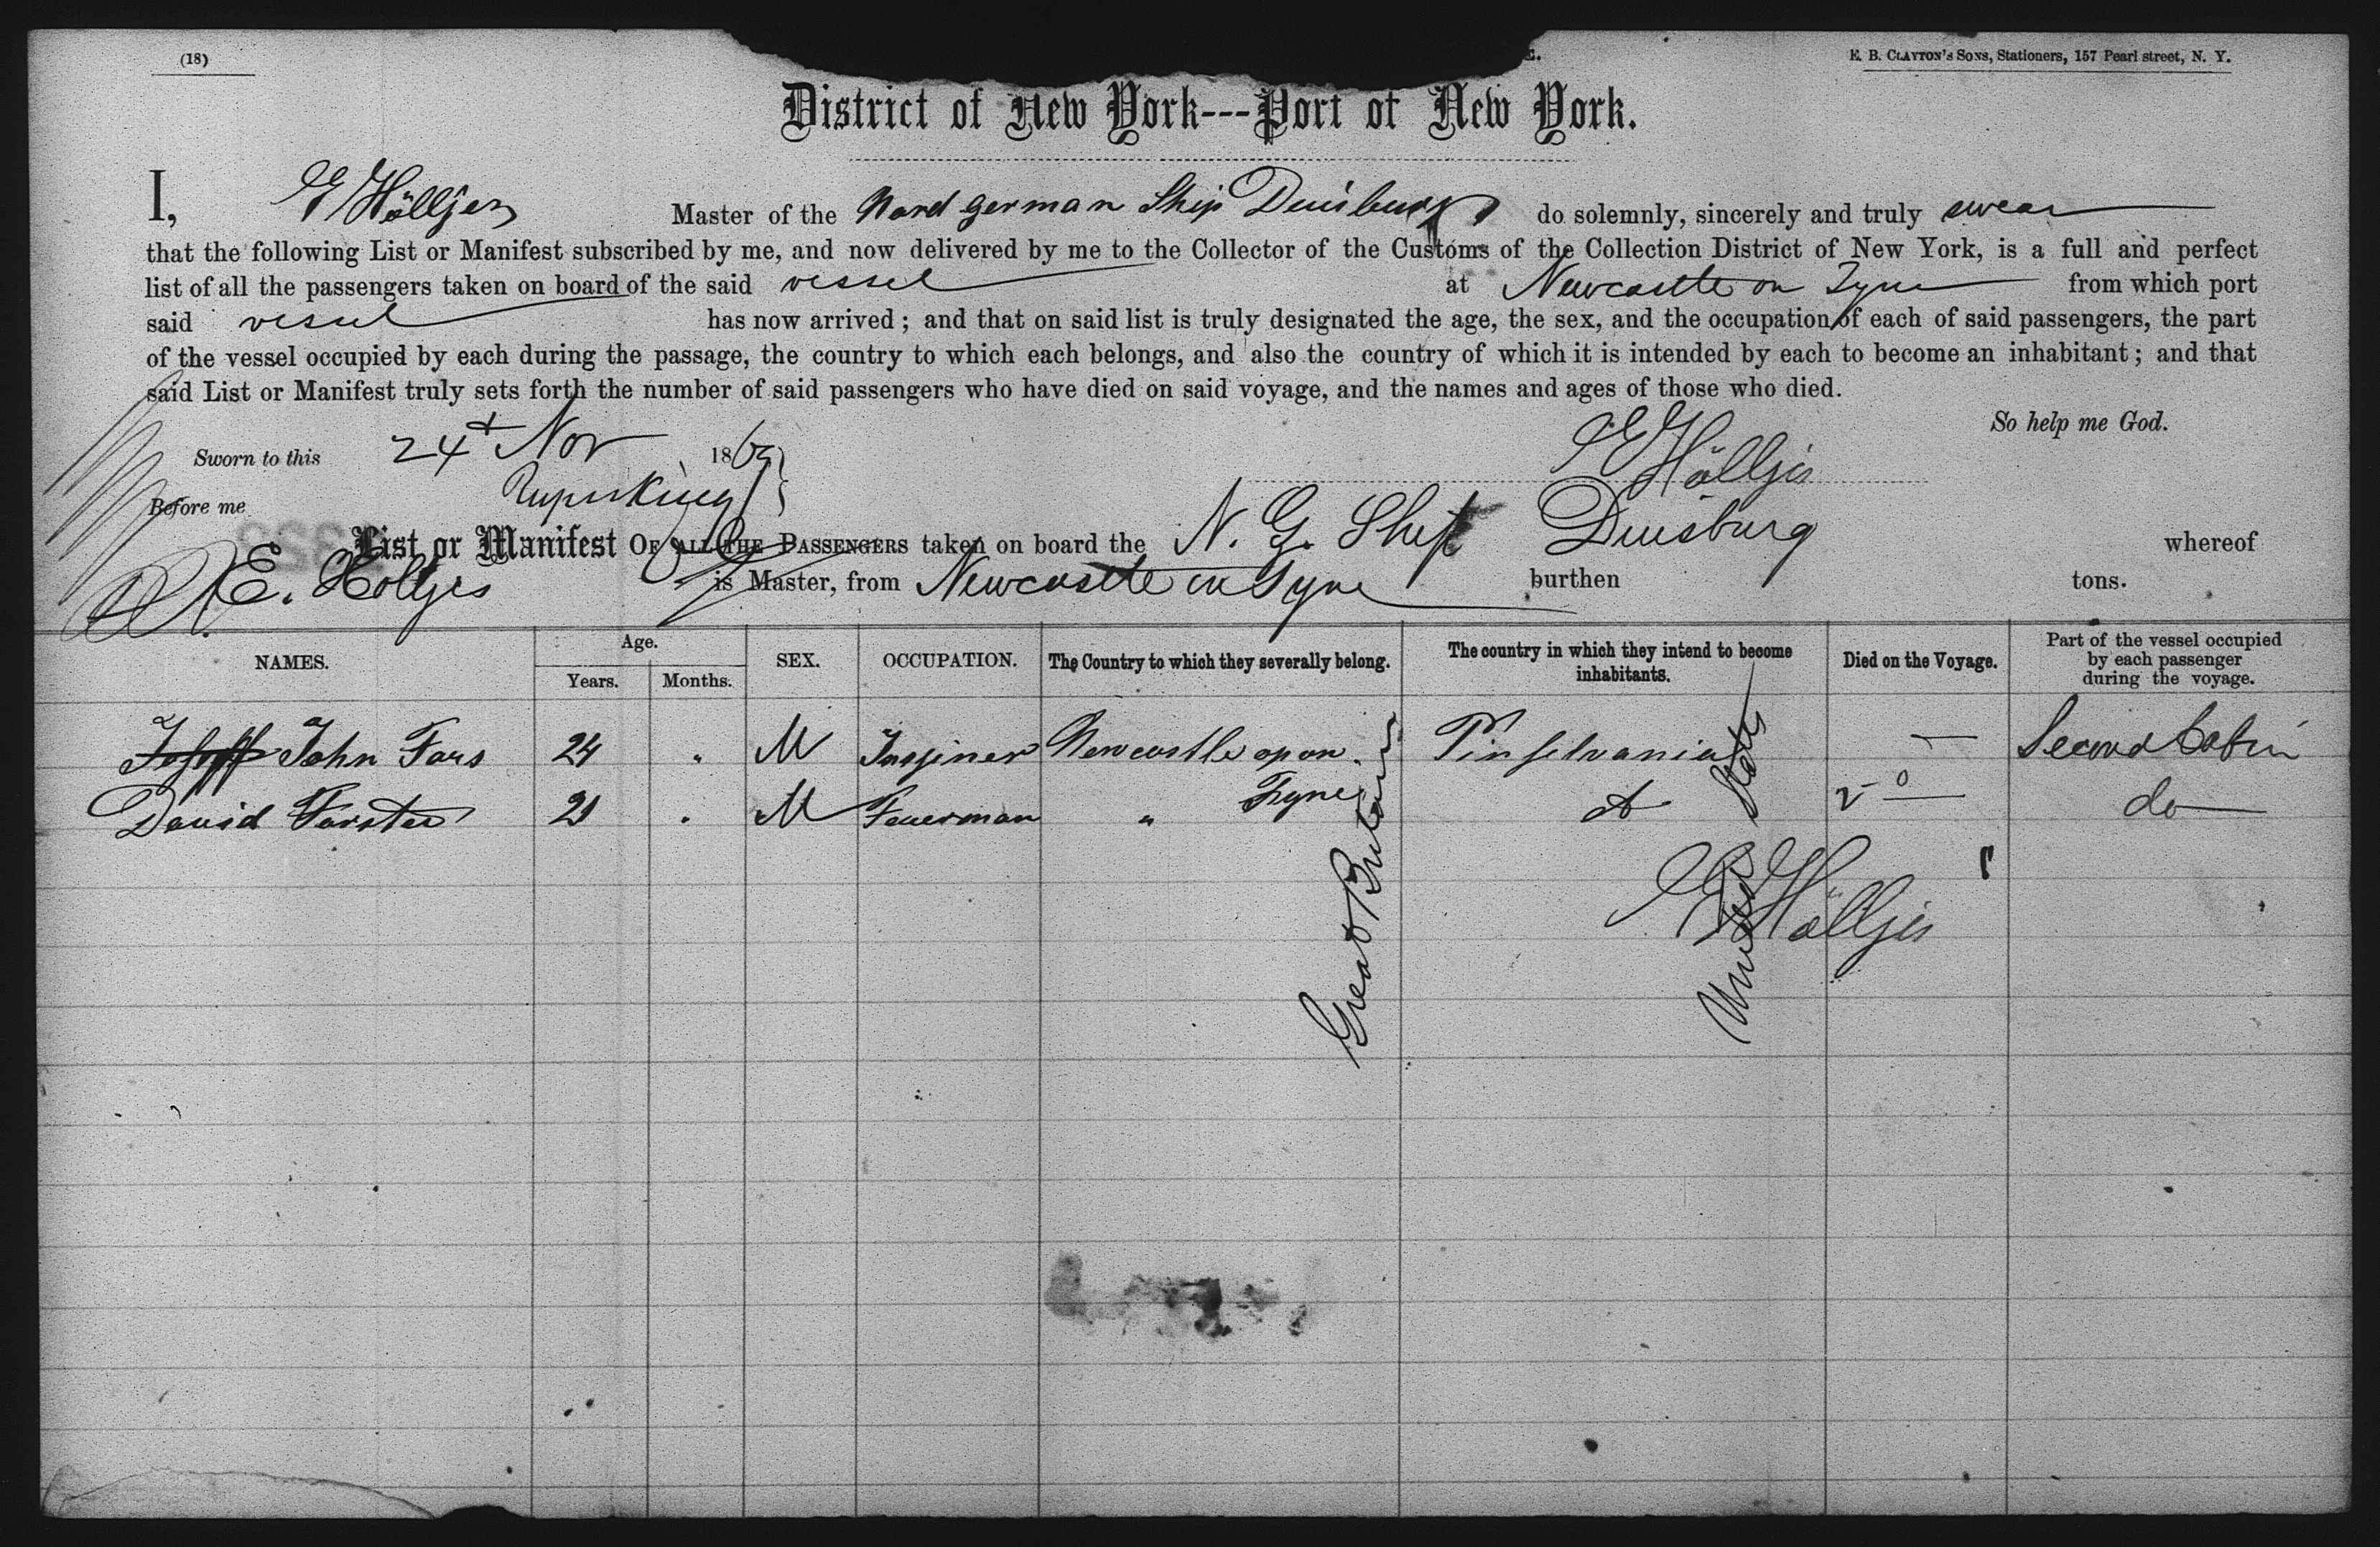 (18)
E. B. CLAYTON'S SONS, Stationers, 157 Pearl street, N. Y.
District of New York---Port of New York.
I, E Hölljes Master of the Nord german Ship Duisburg do solemnly, sincerely and truly swear
that the following List or Manifest subscribed by me, and now delivered by me to the Collector of the Customs of the Collection District of New York, is a full and perfect
list of all the passengers taken on board of the said vessel at Newcastle on Tyne from which port
said vessel has now arrived; and that on said list is truly designated the age, the sex, and the occupation of each of said passengers, the part
of the vessel occupied by each during the passage, the country to which each belongs, and also the country of which it is intended by each to become an inhabitant; and that
said List or Manifest truly sets forth the number of said passengers who have died on said voyage, and the names and ages of those who died.
So help me God.
Sworn to this 24t Nov 1869
E Hölljes
Before me
List or Manifest OF ALL THE PASSENGERS taken on board the N. G. Ship Duisburg whereof
E. Holljes is Master, from Newcastle on Tyne burthen tons.
NAMES. Age. Years. Months. SEX. OCCUPATION. The Country to which they severally belong. The country in which they intend to become inhabitants. Died on the Voyage. Part of the vessel occupied by each passenger during the voyage.
John Fars 24 " M Insjiner Newcastle upon Pinselvania — Second Cabin
Tyne
David Forster 21 " M Feuerman " do
Great Britain
United States
E Hölljes